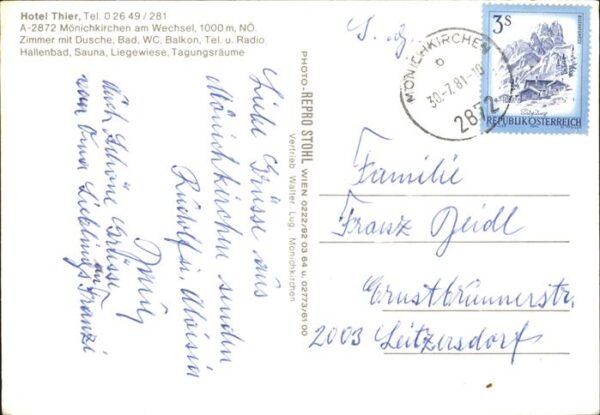 Hotel Thier, Tel. 0 26 49 / 281
A-2872 Mönichkirchen am Wechsel, 1000 m, NÖ.
Zimmer mit Dusche, Bad, WC, Balkon, Tel. u. Radio
Hallenbad, Sauna, Liegewiese, Tagungsräume
Liebe Grüsse aus
Mönichkirchen senden
Rudolf u. Aloisia
Auch schöne Grüsse
von Oma Lieblings
an
Franzi
PHOTO-REPRO STOHL WIEN 0222/92 03 64 u. 02773/61 00
Vertrieb Walter Lug, Mönichkirchen
MÖNICHKIRCHEN
b
30.-7.81-18
2872
3S
REPUBLIK ÖSTERREICH
Familie
Franz Zeidl
Ernstbrunnerstr.
2003 Leitzersdorf